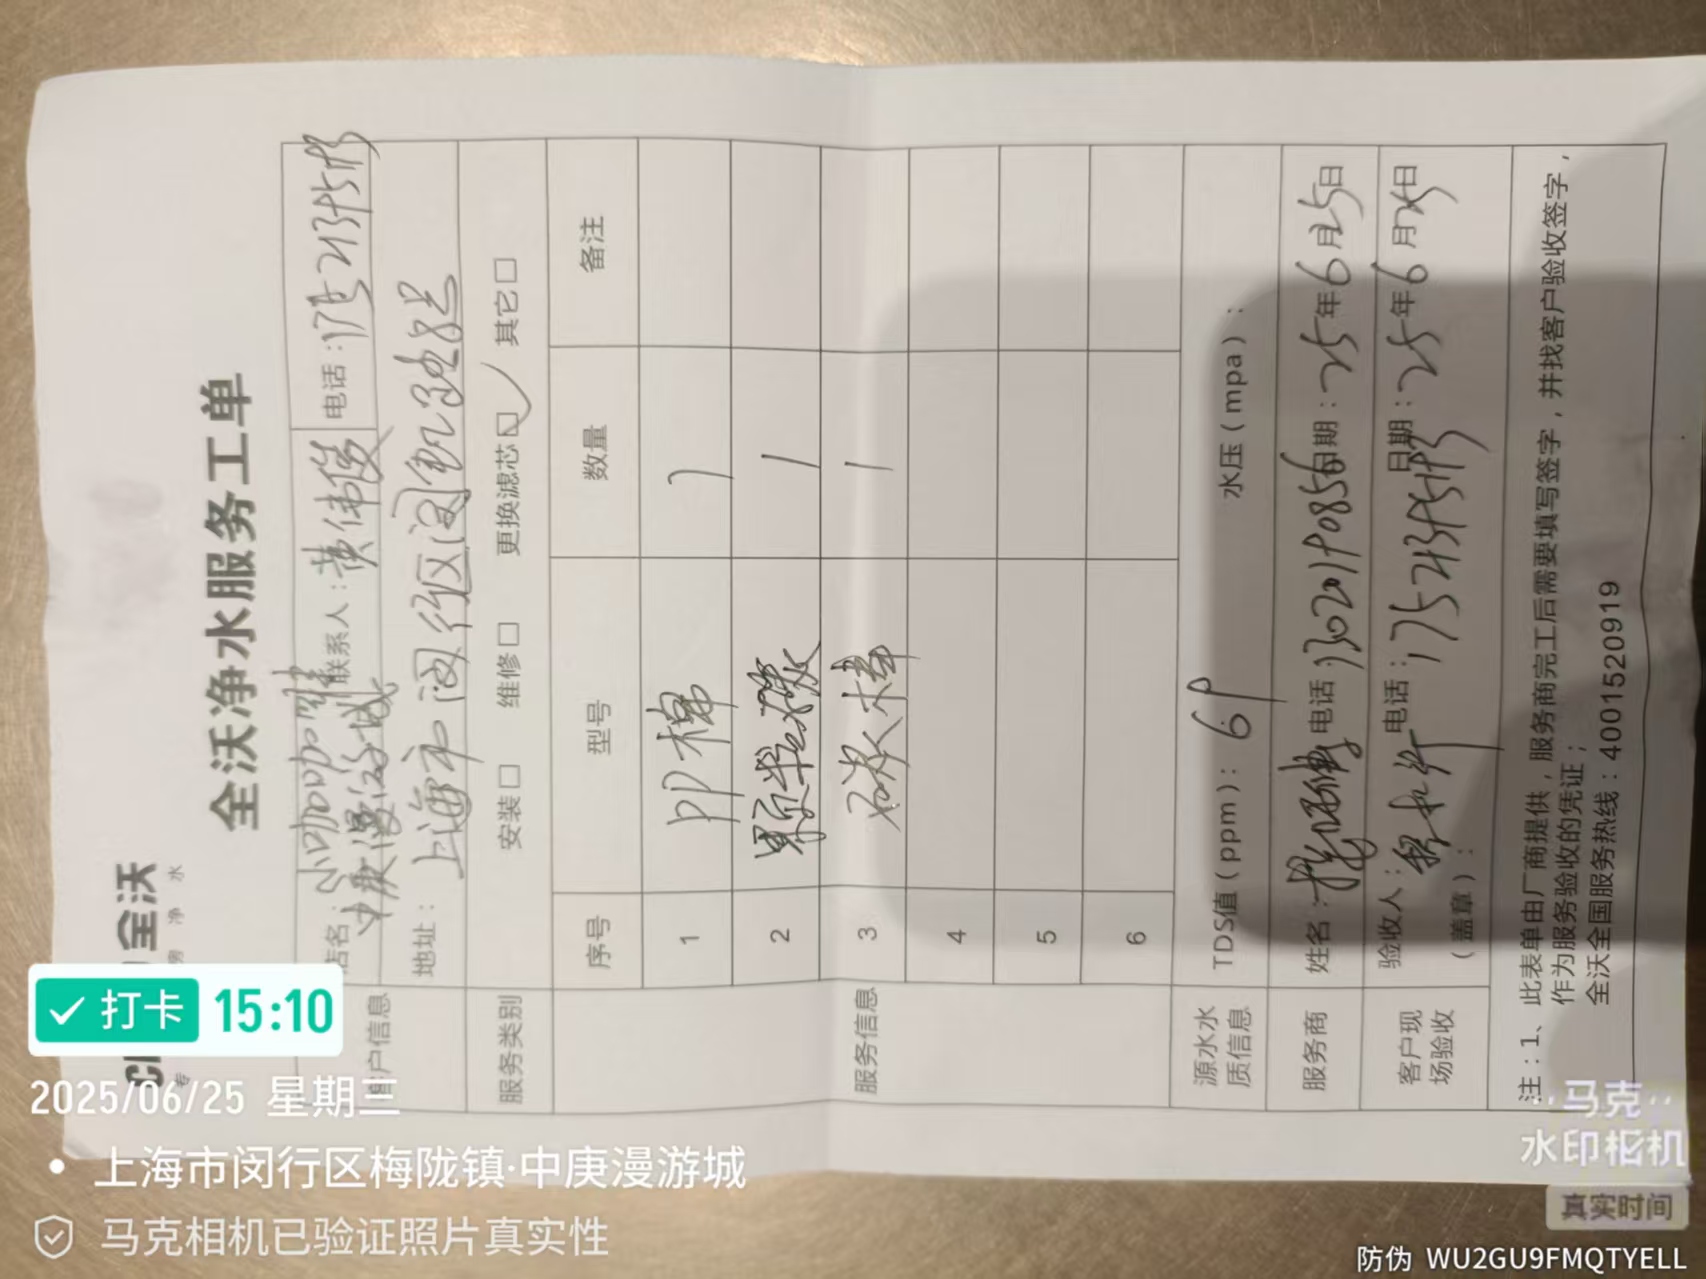 全沃
全沃净水服务工单
客户信息
店名：小咖咖啡 中庚漫游城 联系人：黄伟俊 电话：
地址：上海市闵行区闵虹路
服务类别 安装□ 维修□ 更换滤芯☑ 其它□
服务信息
序号 型号 数量 备注
1 PP棉 1
2 1
3 碳棒 1
4
5
6
源水水质信息 TDS值（ppm）： 水压（mpa）：
服务商 姓名： 电话：13020190856 日期：25年6月25日
客户现场验收 验收人： 电话： 日期：25年6月25日
（盖章）：
注：1、此表单由厂商提供，服务商完工后需要填写签字，并找客户验收签字，
作为服务验收的凭证；
全沃全国服务热线：4001520919
打卡 15:10
2025/06/25 星期三
上海市闵行区梅陇镇·中庚漫游城
马克相机已验证照片真实性
马克
水印相机
真实时间
防伪 WU2GU9FMQTYELL